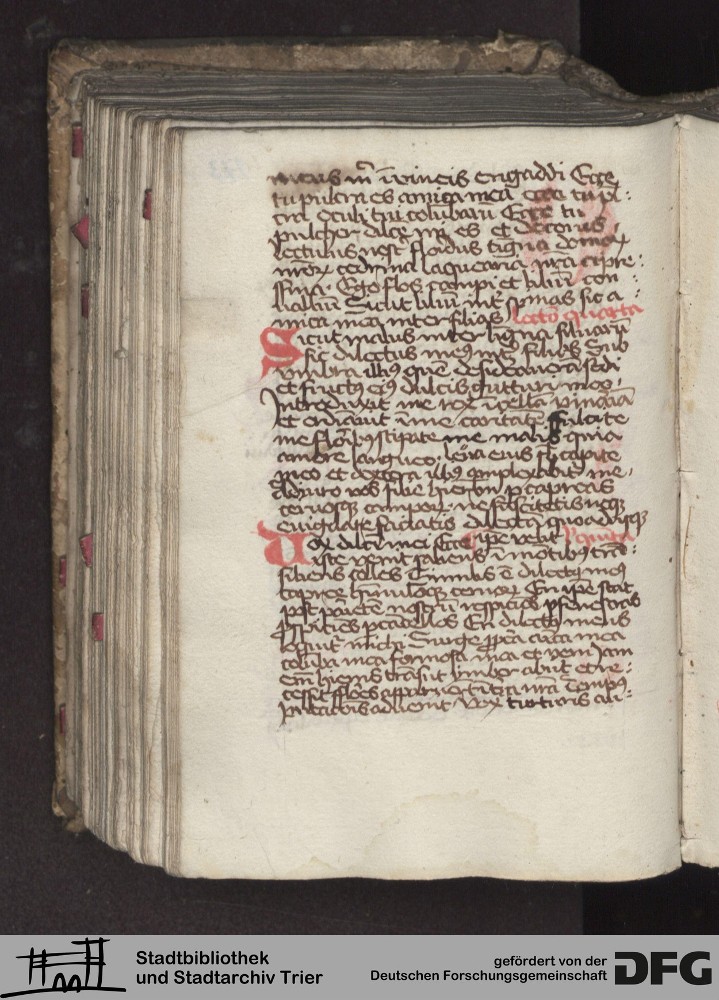 meus mͥ ī vineis engaddi Ecce
tu pulcra es amica mea ecce tu pl:
cra Oculi tui columbaꝝ Ecce tu
pulcher dilcē mi es et decorus
lectulus nostͬ floridus tigna domoꝝ
nrōꝝ cedrina laquearia nrā cipre:
ssina Ego flos campi et liliū con
uallium Sicut liliū int͛ spinas sic a:
mica mea inter filias Lectō quarta
Sicut malus inter ligna siluarū
sic dilectus meꝰ int͛ filios Sub
vmbra illiꝰ quē desideraueram sedi
et fructꝰ eiꝰ dulcis gutturi meo
Introduxit me rex ī cellā vinariā
et ordinauit in me caritatē Fulcite
me floribꝰ stipate me malis quia
amore langueo leua eius sb capite
meo et dextera illiꝰ amplexabit͛ me
Adiuro vos filie hierlm̄ p capreas
ceruosqꝫ campoꝝ ne suscitetis neqꝫ
euigilare faciatis dilectā quoadusqꝫ
Vox dilcī mei Ecce ipa velit Vquinta
iste venit saliens ī motibus trā:
siliens colles Similis ē dilectꝰ meꝰ
capree hinnuloqꝫ ceruoꝝ En ipe stat
post parietē nostrū respiciēs p fenestras
prospiciēs p cācellos En dilectꝰ meus
loquit͛ michi Surge ppera amica mea
colūba mea formosa mea et veni Jam
em̄ hiems trāsiit ymber abiit et re:
cessit Flores apparuerūt ī tr̄a nrā Tempꝰ
putacōis aduenit Vox turturis au:
Stadtbibliothek
und Stadtarchiv Trier
gefördert von der
Deutschen Forschungsgemeinschaft
DFG